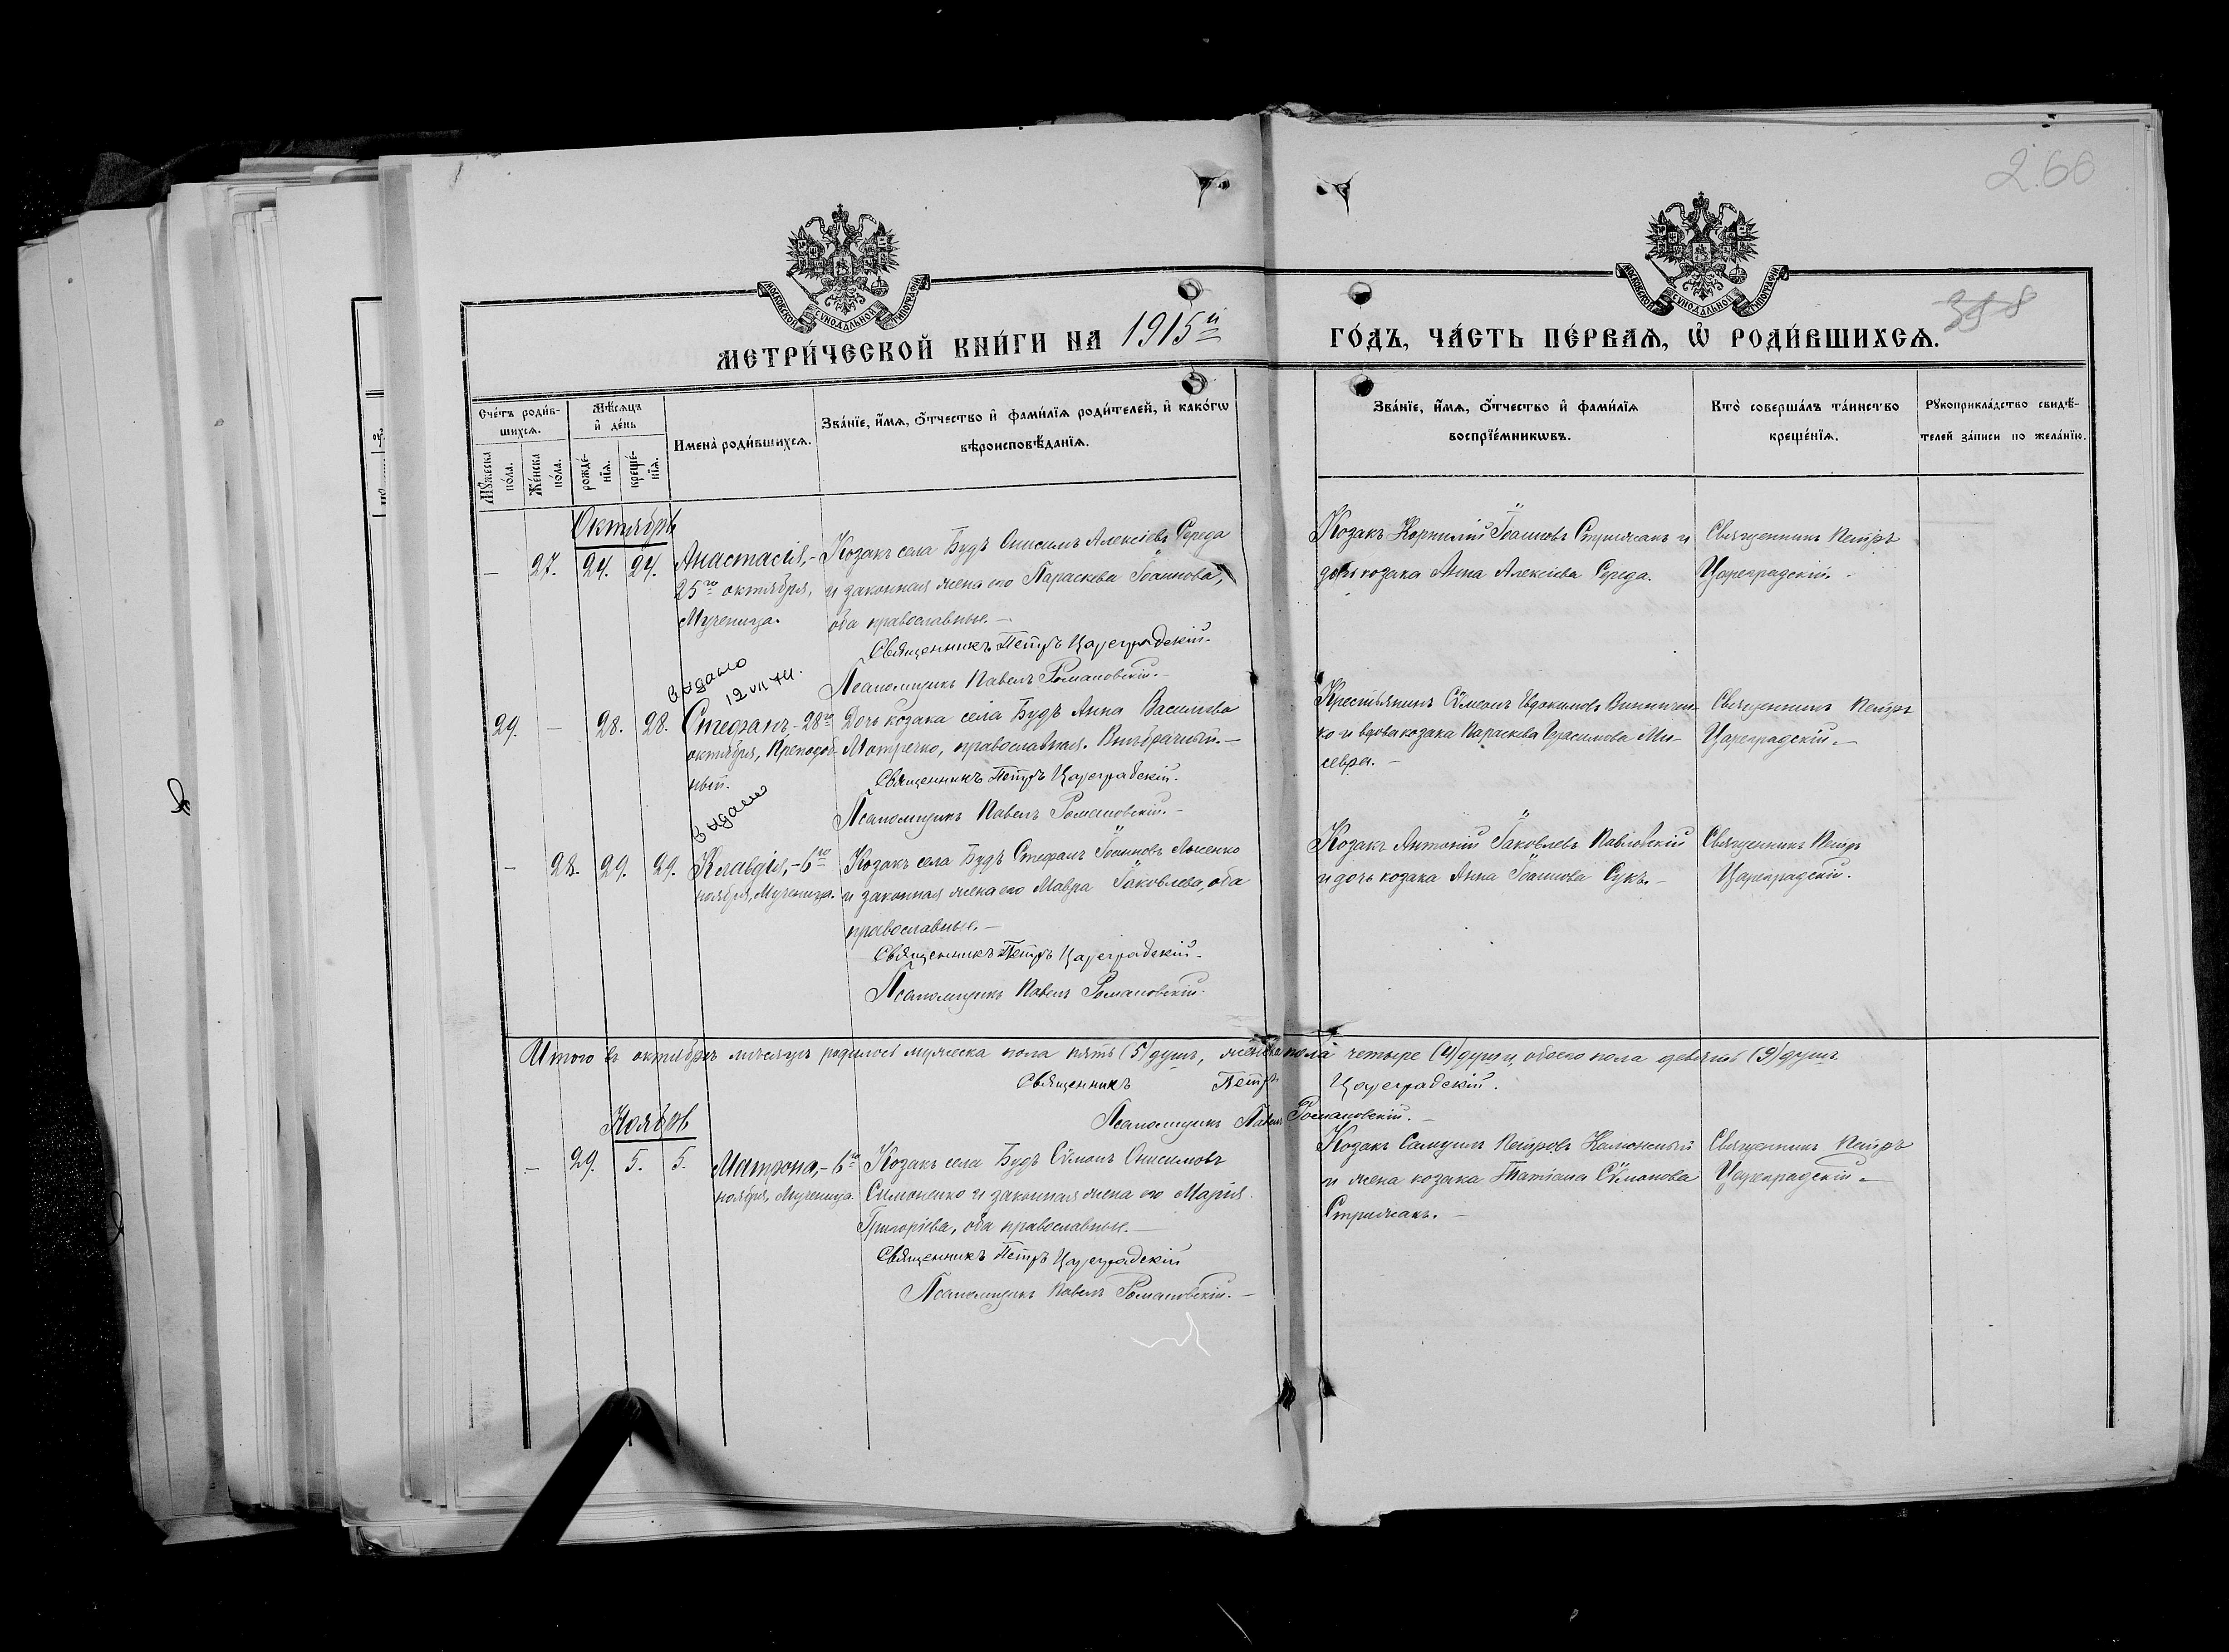 2.60
МОСКОВСКОЙ СѴНОДАЛЬНОЙ ТИПОГРАФІИ
МОСКОВСКОЙ СѴНОДАЛЬНОЙ ТИПОГРАФІИ
МЕТРИ́ЧЕСКОЙ КНИ́ГИ НА 1915й ГО́ДЪ, ЧА́СТЬ ПЕ́РВАѦ, Ѡ҆ РОДИ́ВШИХСѦ.
Сче́тъ роди́в-
шихсѧ.
Мѣ́сѧцъ
и҆ де́нь
Мꙋ́жеска
по́ла.
Же́нска
по́ла.
рожде́-
нїѧ.
креще́-
нїѧ.
Имена̀ роди́вшихсѧ.
Зва́нїе, и҆́мѧ, ѻ҆́тчество и҆ фами́лїѧ роди́телей, и҆ како́гѡ
вѣроисповѣ́данїѧ.
Зва́нїе, и҆́мѧ, ѻ҆́тчество и҆ фами́лїѧ
воспрїе́мникѡвъ.
Кто̀ соверша́лъ та́инство
креще́нїѧ.
Рꙋкоприкла́дство свидѣ́-
телей за́писи по жела́нїю.
Октябрь
— 27. 24. 24. Анастасія, –
25го октября,
Мученица.
Козакъ села Будъ Онисимъ Алексіевъ Середа
и законная жена его Параскева Іоаннова,
оба православные. —
Священникъ Петръ Цареградскій.
Псаломщикъ Павелъ Романовскій. —
Козакъ Корнилій Іоанновъ Стрижакъ и
дочь козака Анна Алексіева Середа.
Священникъ Петръ
Цареградскій. –
Видано
12 VII
29. — 28. 28. Стефанъ, – 28го
октября, Преподоб-
ный.
Дочь козака села Будъ Анна Василіева
православная. Внѣбрачный. —
Священникъ Петръ Цареградскій.
Псаломщикъ Павелъ Романовскій. –
Крестьянинъ Сѵмеонъ Евдокимовъ Винничен-
ко и вдова козака Параскева Герасимова Ми-
севра. –
Священникъ Петръ
Цареградскій. –
Видано
— 28. 29. 29. Клавдія, – 6го
ноября, Мученица.
Козакъ села Будъ Стефанъ Іоанновъ
и законная жена его Мавра Іаковлева, оба
православные. —
Священникъ Петръ Цареградскій.
Псаломщикъ Павелъ Романовскій.
Козакъ Антоній Іаковлевъ Павловскій
и дочь козака Анна Іоаннова Сукъ. –
Священникъ Петръ
Цареградскій.
Итого въ октябрѣ мѣсяцѣ родилось мужеска пола пять (5) душъ, женска пола четыре (4) души, обоего пола девять (9) душъ.
Священникъ Петръ Цареградскій.
Псаломщикъ Павелъ Романовскій. –
Ноябрь
— 29. 5. 5. Матрона, – 6го
ноября, Мученица.
Козакъ села Будъ Сѵмонъ Онисимовъ
Симоненко и законная жена его Марія
Григоріева, оба православные. —
Священникъ Петръ Цареградскій
Псаломщикъ Павелъ Романовскій. –
Козакъ Самуилъ Петровъ
и жена козака Татіана Сѵмонова
Стрижакъ. –
Священникъ Петръ
Цареградскій. –